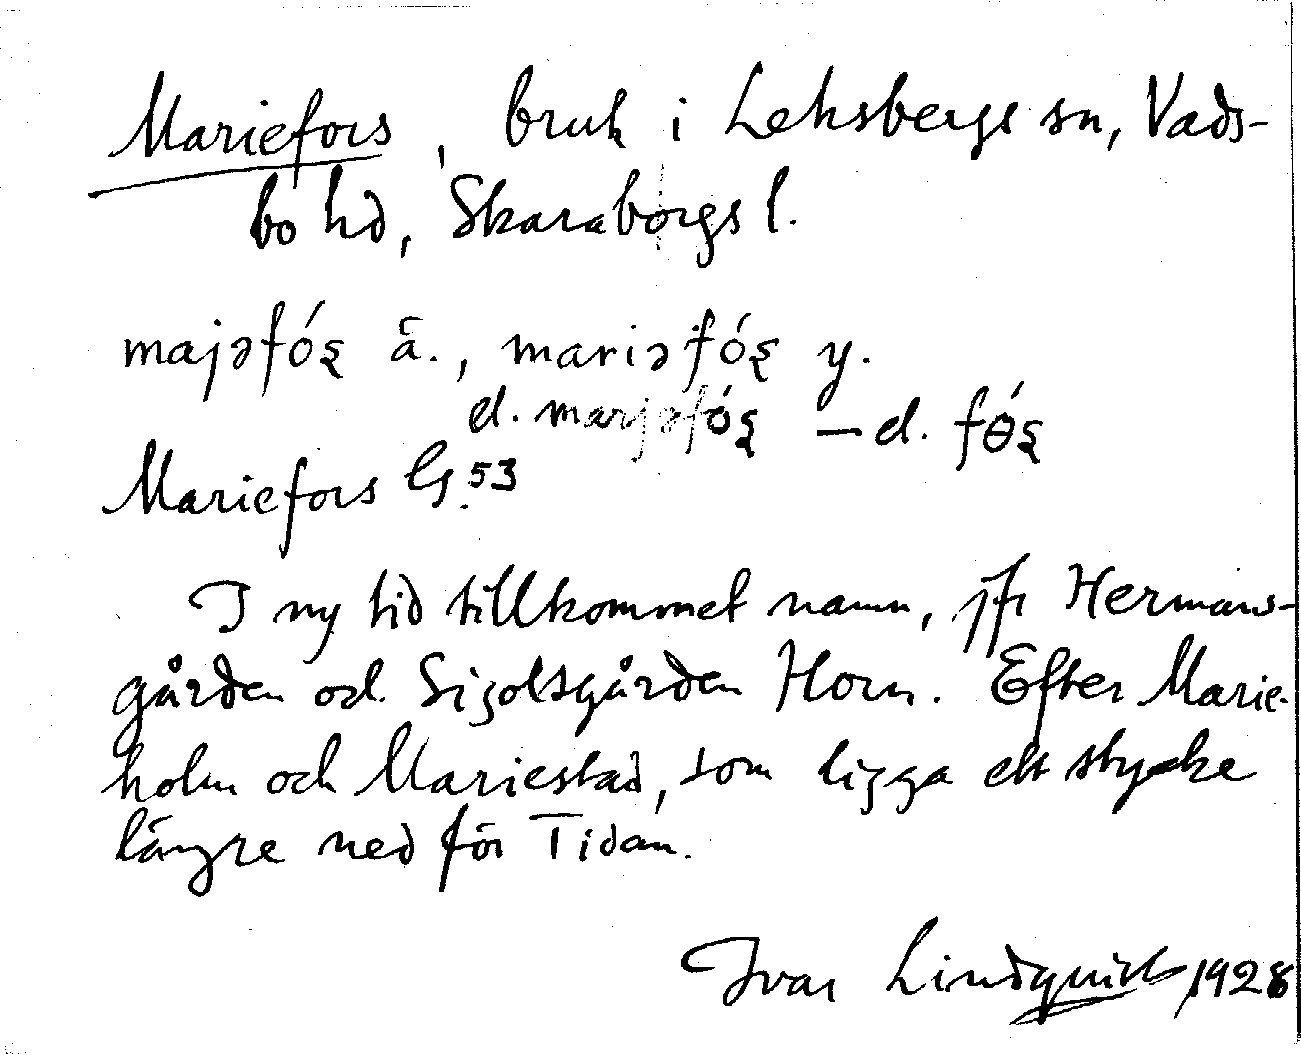 Mariefors, bruk i Leksbergs sn, Vads-
bo hd, Skaraborgs l.
majəfǫ́ʂ ä., mariəfǫ́ʂ y.
el. marjəfǫ́ʂ – el. fɵ́ʂ
Mariefors G. 53
I ny tid tillkommet namn, jfr Hermans-
gården och Sigolsgården Horn. Efter Marie-
holm och Mariestad, som ligga ett stycke
längre ned för Tidan.
Ivar Lindquist 1928